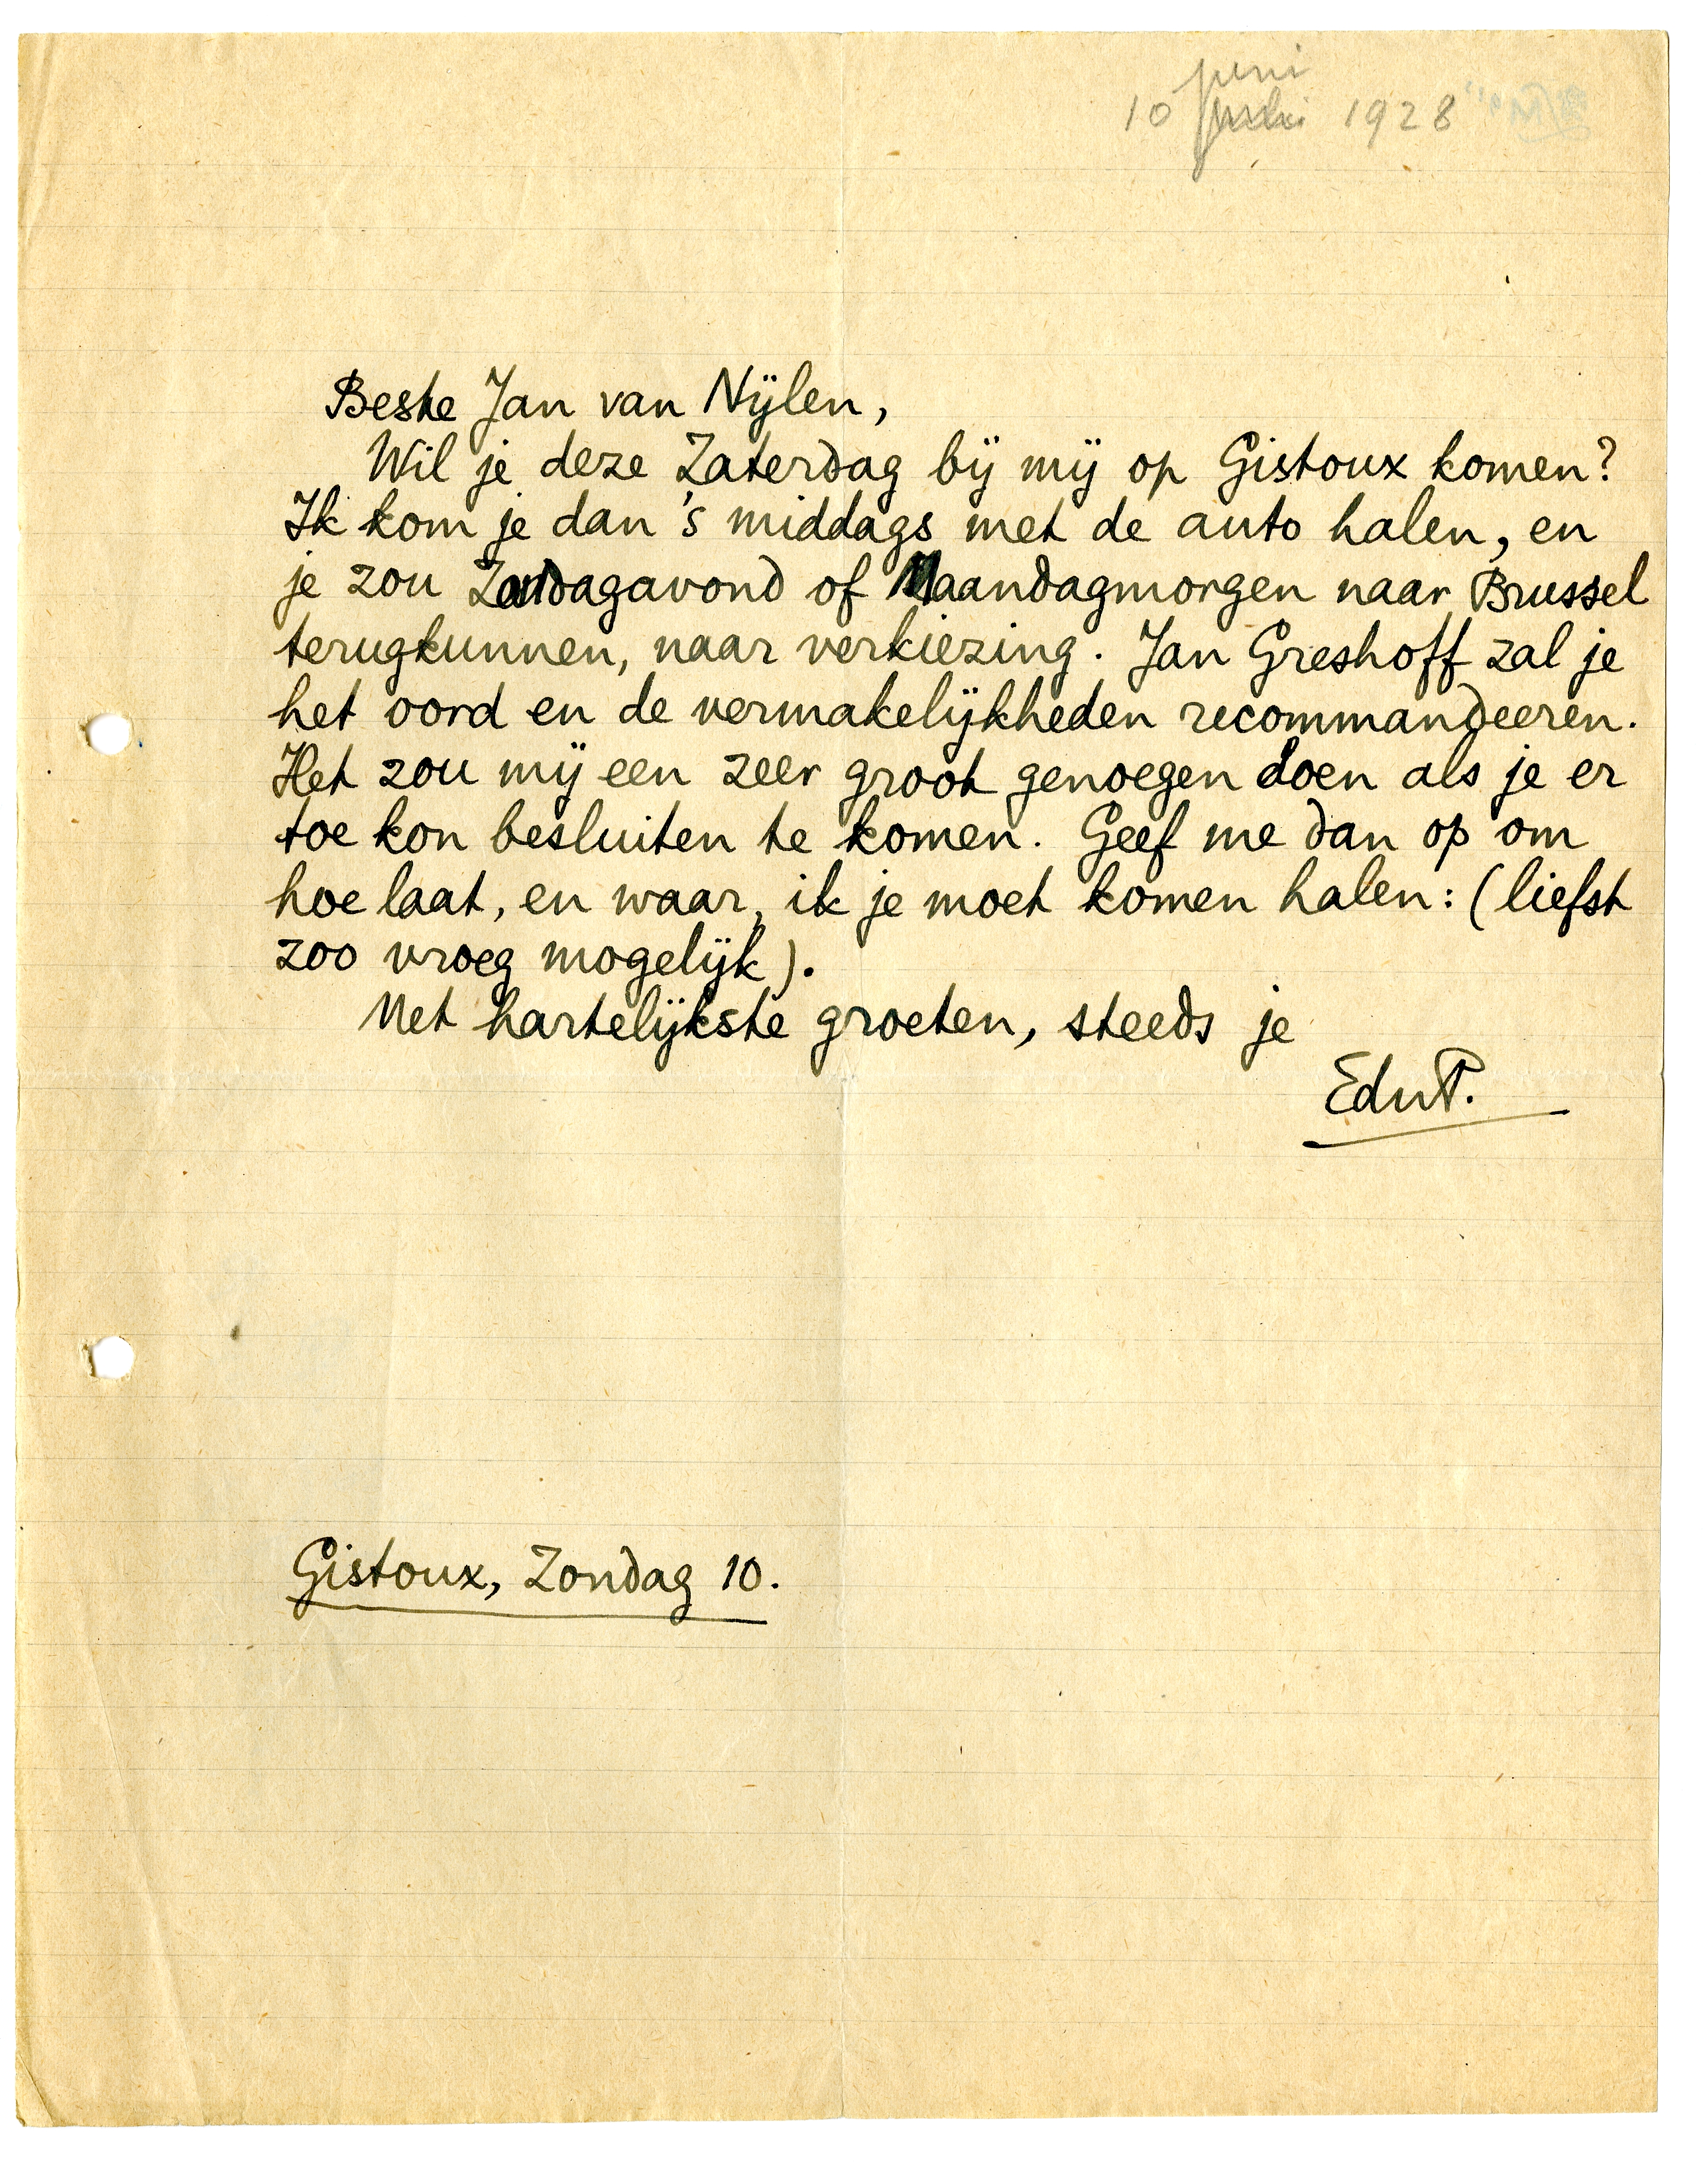 juni
10 juli 1928
Beste Jan van Nijlen,
Wil je deze Zaterdag bij mij op Gistoux komen?
Ik kom je dan 's middags met de auto halen, en
je zou Zondagavond of Maandagmorgen naar Brussel
terugkunnen, naar verkiezing. Jan Greshoff zal je
het oord en de vermakelijkheden recommandeeren.
Het zou mij een zeer groot genoegen doen als je er
toe kon besluiten te komen. Geef me dan op om
hoe laat, en waar, ik je moet komen halen: (liefst
zoo vroeg mogelijk).
Met hartelijkste groeten, steeds je
EduP.
Gistoux, Zondag 10.